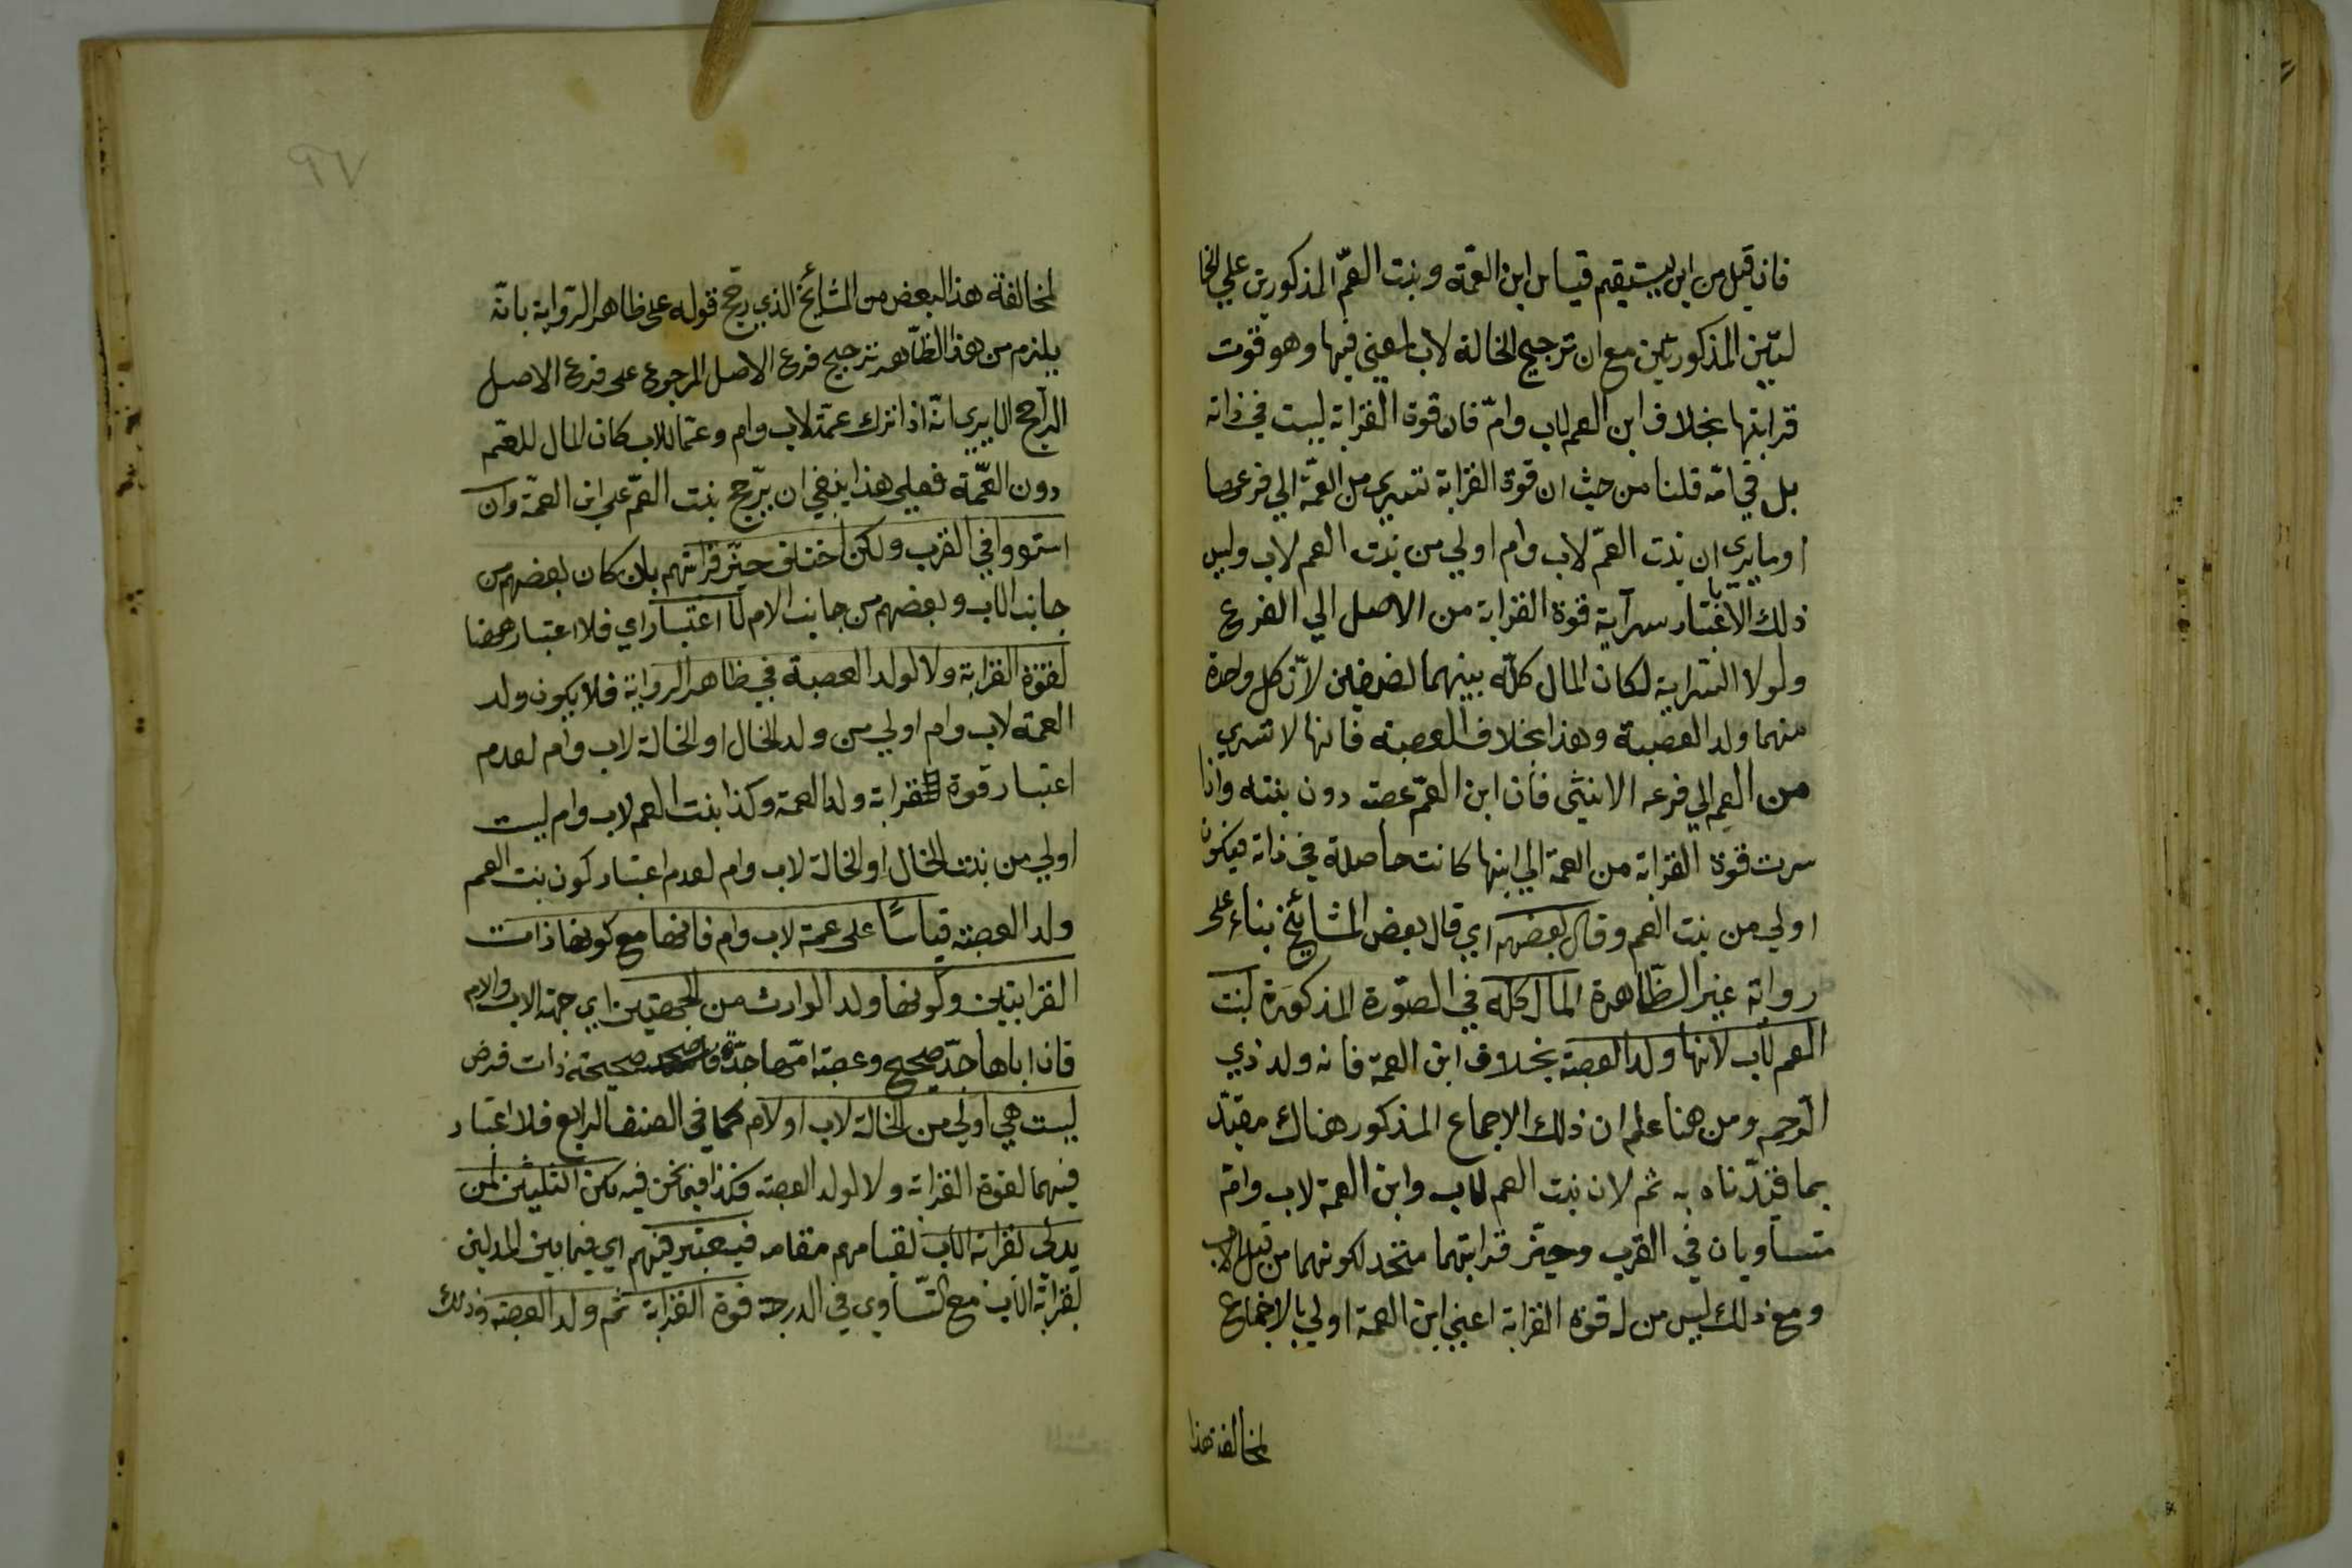 فان قيل من اين يستقيم قياس ابن العمّة وبنت العمّ المذكورين علي الخا
لتين المذكورتين مع ان ترجيح الخالة لاب لمعني فيها وهو قوت
قرابتها بخلاف ابن العم لاب وامّ فان قوة القرابة ليست في ذاته
بل في امّه قلنا من حيث ان قوة القرابة تسري من العمّة الي فرعها
او ما يري ان بنت العمّ لاب وام اولي من بنت العم لاب وليس
ذلك الّا باعتبار سرآية قوة القرابة من الاصل الي الفرع
ولولا السّراية لكان المال كلّه بينهما نصفين لانّ كل واحدة
منهما ولد العصبة وهذا بخلاف العصبة فانها لا تسري
من العم الي فرعه الانثي فان ابن العمّ عصبة دون بنته واذا
سرت قوة القرابة من العمة الي ابنها كانت حاصلة في ذاته فيكون
اولي من بنت العم وقال بعضهم اي قال بعض المشائخ بناء علي
رواية غير الظّاهرة المال كلّه في الصّورة المذكورة لبنت
العم لاب لانها ولد العصبة بخلاف ابن العمة فانه ولد ذي
الرّحم ومن هنا علم ان ذلك الاجماع المذكور هناك مقيّد
بما قيّدناه به ثم لان بنت العم لاب وابن العمة لاب وامّ
متساويان في القرب وحيّز قرابتهما متّحد لكونهما من قبل الاب
ومع ذلك ليس من له قوة القرابة اعني ابن العمة اولي بالاجماع
لمخالفة هذا
٩٧
لمخالفة هذا البعض من المشائخ الذي رجّح قوله علي ظاهر الرّواية بانّه
يلزم من هذا الظّاهر ترجيح فرع الاصل المرجوع علي فرع الاصل
الرّاجح الا يري انّه اذا ترك عمّة لاب وام وعمّا للاب كان المال للعم
دون العمّة فعلي هذا ينبغي ان يرّجح بنت العمّ علي ابن العمّة وان
استووا في القرب ولكن اختلف حيّز قرابتهم بان كان بعضهم من
جانب الاب وبعضهم من جانب الام لا اعتبار اي فلا اعتبار ههنا
لقوة القرابة ولا لولد العصبة في ظاهر الرواية فلا يكون ولد
العمة لاب وام اولي من ولد الخال او الخالة لاب وام لعدم
اعتبار قوة قرابة ولد العمة وكذا بنت العم لاب وام ليست
اولي من بنت الخال او الخالة لاب وام لعدم اعتبار كون بنت العم
ولد العصبة قياسًا علي عمة لاب وام فانها مع كونها ذات
القرابتين وكونها ولد الوارث من الجهتين اي جهة الاب والام
فان اباها جدّ صحيح وعصبة امّها جدّة صحيحة ذات فرض
ليست هي اولي من الخالة لاب او لام كما في الصنف الرابع فلا اعتبار
فيهما لقوة القرابة ولا لولد العصبة فكذا فيما نحن فيه لكن الثلثين لمن
يدلي بقرابة الاب لقيامهم مقامه فيعتبر فيهم اي فيما بين المدلين
بقرابة الاب مع التّساوي في الدرجة قوة القرابة ثم ولد العصبة وذلك